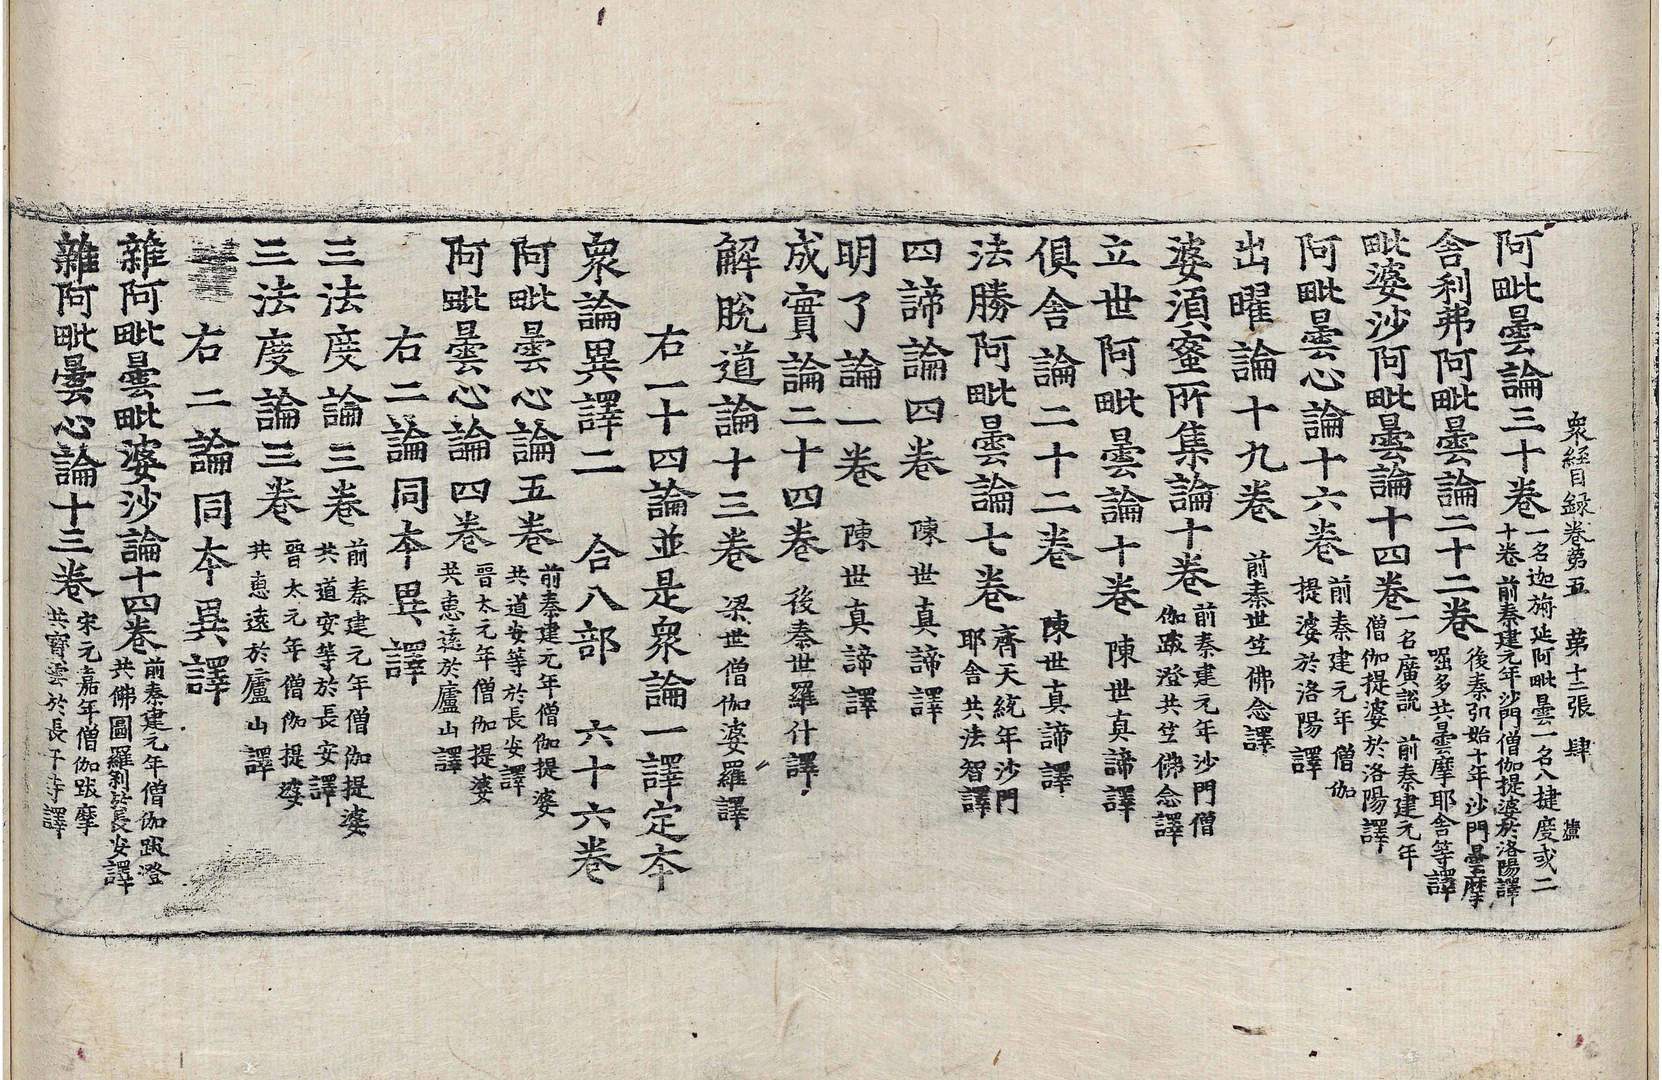 衆經目録卷第五　第十二張　肆
阿毗曇論三十卷 一名迦旃延阿毗曇一名八揵度或二十卷 前秦建元年沙門僧伽提婆於洛陽譯
舍利弗阿毗曇論二十二卷 後秦弘始十年沙門曇摩崛多共曇摩耶舍等譯
毗婆沙阿毗曇論十四卷 一名廣說 前秦建元年僧伽提婆於洛陽譯
阿毗曇心論十六卷 前秦建元年僧伽提婆於洛陽譯
出曜論十九卷 前秦世竺佛念譯
婆須蜜所集論十卷 前秦建元年沙門僧伽跋澄共竺佛念譯
立世阿毗曇論十卷 陳世真諦譯
俱舍論二十二卷 陳世真諦譯
法勝阿毗曇論七卷 齊天統年沙門耶舍共法智譯
四諦論四卷 陳世真諦譯
明了論一卷 陳世真諦譯
成實論二十四卷 後秦世羅什譯
解脫道論十三卷 梁世僧伽婆羅譯
右一十四論並是衆論一譯定本
衆論異譯二　合八部　六十六卷
阿毗曇心論五卷 前秦建元年僧伽提婆共道安等於長安譯
阿毗曇心論四卷 晉太元年僧伽提婆共惠遠於廬山譯
右二論同本異譯
三法度論三卷 前秦建元年僧伽提婆共道安等於長安譯
三法度論三卷 晉太元年僧伽提婆共惠遠於廬山譯
右二論同本異譯
雜阿毗曇毗婆沙論十四卷 前秦建元年僧伽跋澄共佛圖羅剎於長安譯
雜阿毗曇心論十三卷 宋元嘉年僧伽跋摩共寶雲於長干寺譯